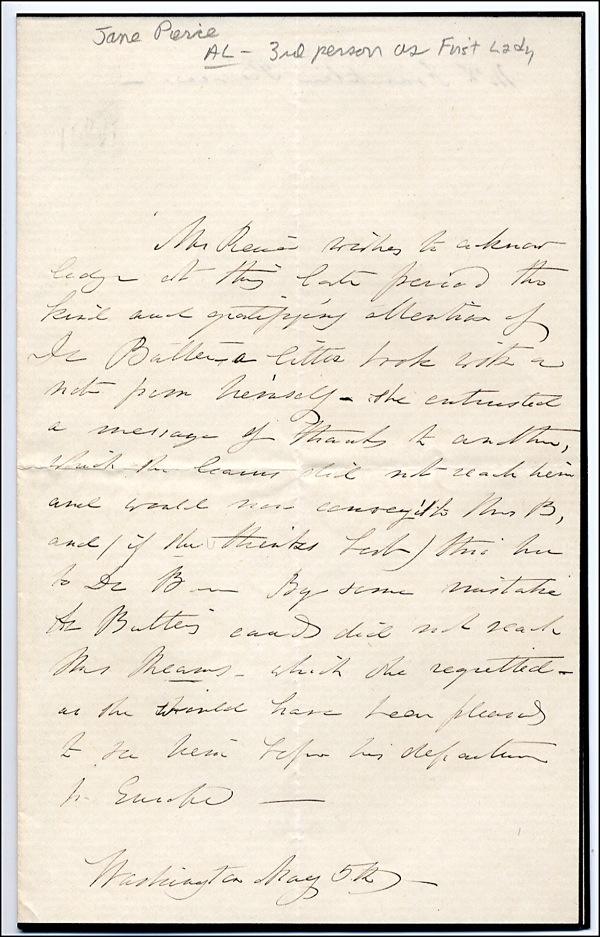 Jane Pierce
AL - 3rd person as First Lady
Mrs Pierce wishes to acknow
ledge at this late period the
kind and gratifying attention of
Dr Butler a little book with a
note from himself - she entrusted
a message of thanks to another,
which she learns did not reach him
and would now convey it to Mrs B,
and (if she thinks best) this line
to Dr B — By some mistake
Dr Butler's card did not reach
Mrs Means - which she regretted -
as she would have been pleased
to see him before his departure
for Europe —
Washington May 5th —